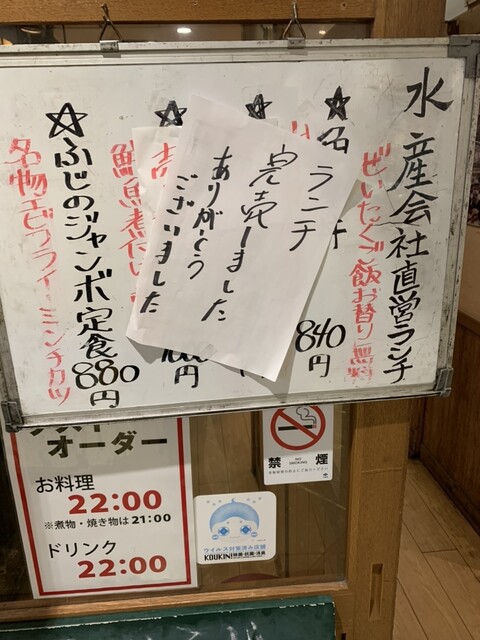 水産会社直営ランチ
ぜいたくご飯お替り無料
★名
840円
円
鮮魚煮付
☆ふじのジャンボ定食
880円
名物エビフライ・ミンチカツ
ランチ
完売しました
ありがとう
ございました
オーダー
お料理
22:00
※煮物・焼き物は21:00
ドリンク
22:00
禁煙
NO SMOKING
ウイルス対策済み店舗
KOUKIN!